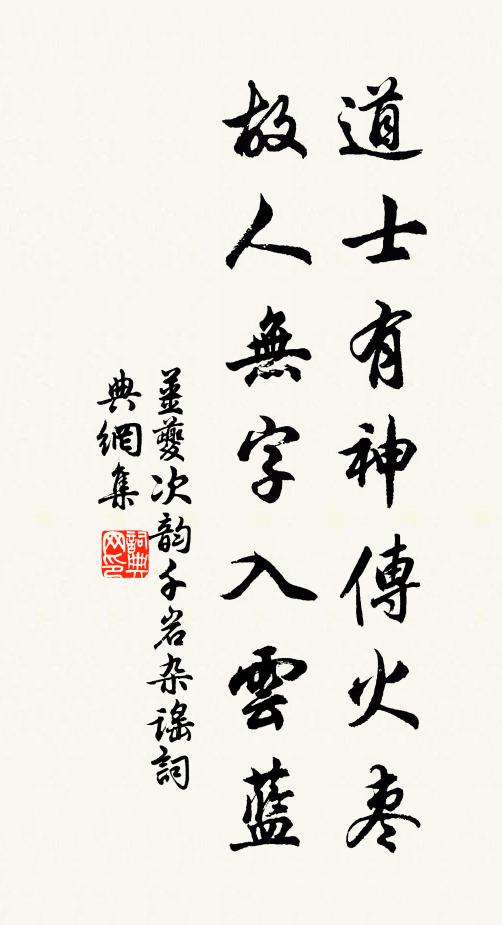 道士有神傳火枣
故人無字入雲藍
姜夔次韵千岩杂謡詞
典網集
詞典
网印